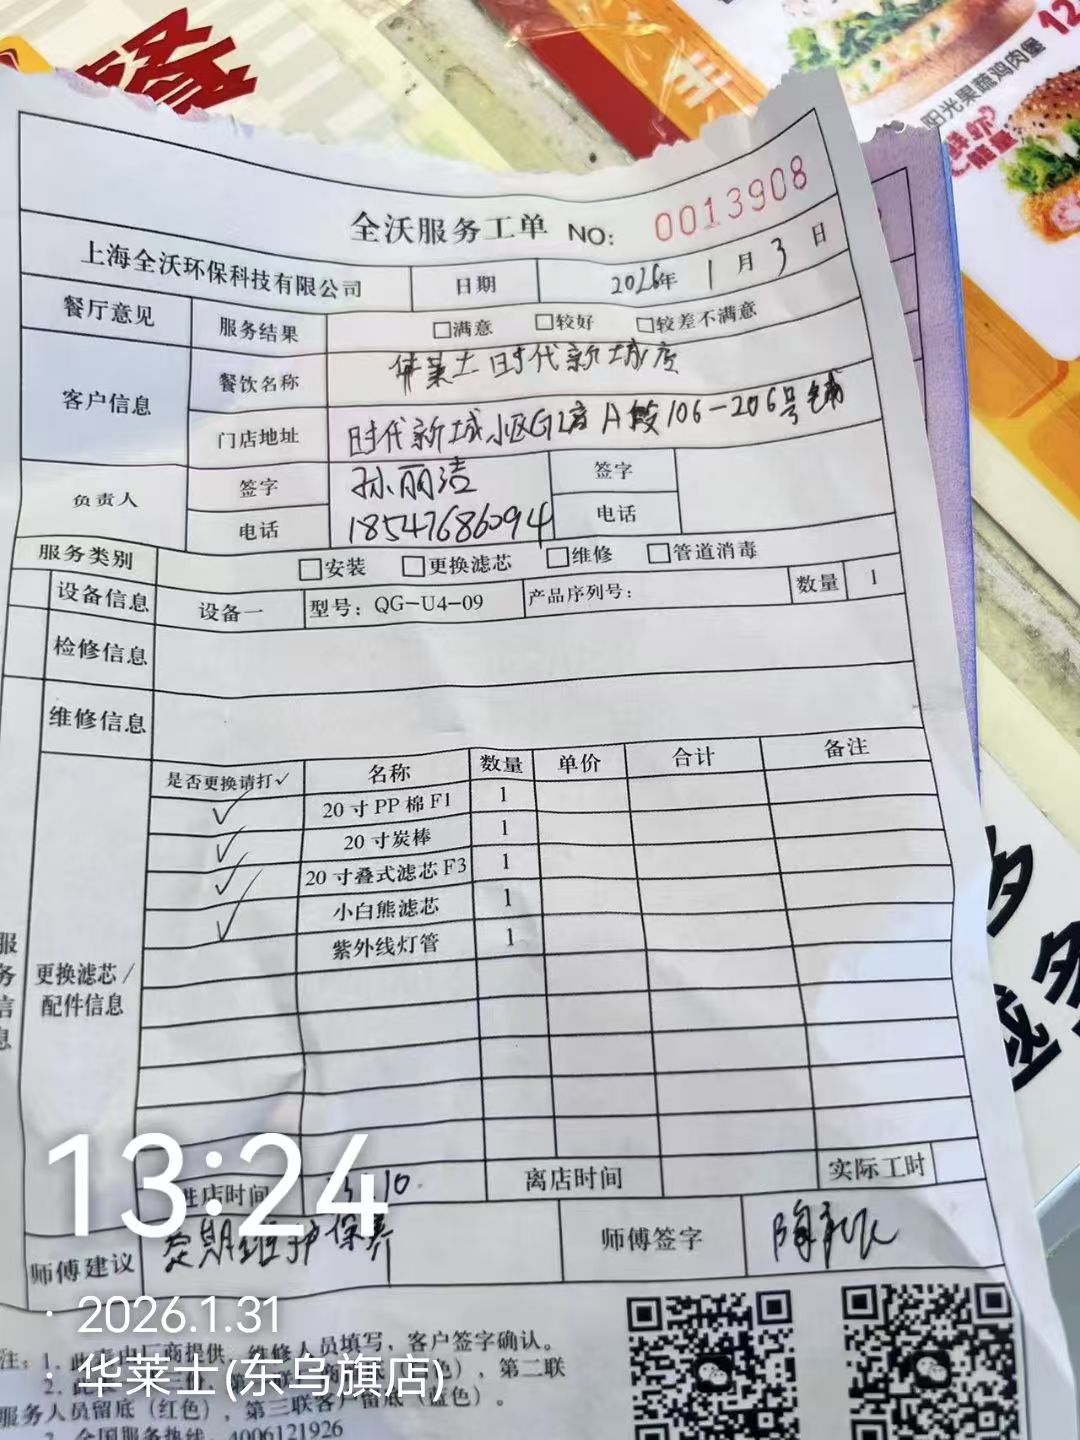 阳光果蔬鸡肉堡
全沃服务工单 NO: 0013908
上海全沃环保科技有限公司 日期 2026年 1月 3日
餐厅意见 服务结果 □满意 □较好 □较差不满意
客户信息 餐饮名称 华莱士时代新城店
门店地址 时代新城小区G1座A段106-206号铺
负责人 签字 孙丽洁 签字
电话 18547686094 电话
服务类别 □安装 □更换滤芯 □维修 □管道消毒
设备信息 设备一 型号: QG-U4-09 产品序列号: 数量 1
检修信息
维修信息
是否更换请打✓ 名称 数量 单价 合计 备注
✓ 20寸PP棉F1 1
✓ 20寸炭棒 1
✓ 20寸叠式滤芯F3 1
✓ 小白熊滤芯 1
紫外线灯管 1
服务信息
更换滤芯/
配件信息
进店时间 离店时间 实际工时
师傅建议 定期维护保养 师傅签字
13:24
· 2026.1.31
· 华莱士(东乌旗店)
注: 1. 维修人员填写, 客户签字确认。
2. 第二联
服务人员留底 (红色), 第三联客户留底 (蓝色)。
3. 全国服务热线: 4006121926